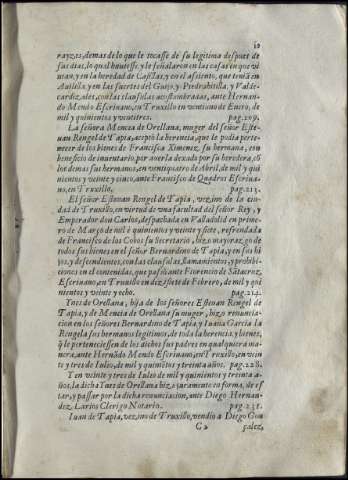 10
rayzes, demas de lo que le tocasse de su legitima despues de
sus dias, lo qual huuesse, y le señalaron en las casas en que vi
uian, y en la heredad de Casillas, y en el assiento, que tenia en
Autilella, y en las suertes del Guijo, y Piedrahitilla, y Valde-
cardizales, con las clausulas acostumbradas, ante Hernan-
do Mendo Escriuano, en Truxillo en ventiuno de Enero, de
mil y quinientos y veintitres. pag. 209.
La señora Mencia de Orellana, muger del señor Este-
uan Rengel de Tapia, aceptó la herencia, que le podia perte-
necer de los bienes de Francisca Ximenez, su hermana, con
beneficio de inuentario, por auerla dexado por su heredera, cõ
los demas sus hermanos, en ventiquatro de Abril, de mil y qui
nientos y veinte y cinco, ante Francisco de Quadros Escriua-
no, en Truxillo. pag. 213.
El señor Esteuan Rengel de Tapia, vezino de la ciu-
dad de Truxillo, en virtud de vna facultad del señor Rey, y
Emperador don Carlos, despachada en Valladolid en prime-
ro de Março de mil è quinientos y veinte y siete, refrendada
de Francisco de los Cobos su Secretario, hizo mayorazgo de
todos sus bienes en el señor Bernardino de Tapia, y en sus hi-
jos, y descendientes, con las clausulas, llamamientos, y prohibi-
ciones en el contenidas, que passó ante Florencio de Sãtacruz,
Escriuano, en Truxillo en diez y siete de Febrero, de mil y qui
nientos y veinte y ocho. pag. 214.
Ynes de Orellana, hija de los señores Esteuan Rengel de
Tapia, y de Mencia de Orellana su muger, hizo renuncia-
cion en los señores Bernardino de Tapia, y Iuana Garcia la
Rengela sus hermanos legitimos, de toda la herencia, y bienes,
q̃ le perteneciessen de los dichos sus padres en qualquiera ma
nera, ante Hernãdo Mendo Escriuano, en Truxillo, en vein
te y tres de Iulio, de mil y quinientos y treinta años. pag. 228.
Y en veinte y tres de Iulio de mil y quinientos y treinta a-
ños, la dicha Ynes de Orellana hizo juramento en forma, de es
tar, y passar por la dicha renunciacion, ante Diego Hernan-
dez Larios Clerigo Notario. pag. 235.
Iuan de Tapia, vezino de Truxillo, vendio a Diego Gon
C 2 çalez,